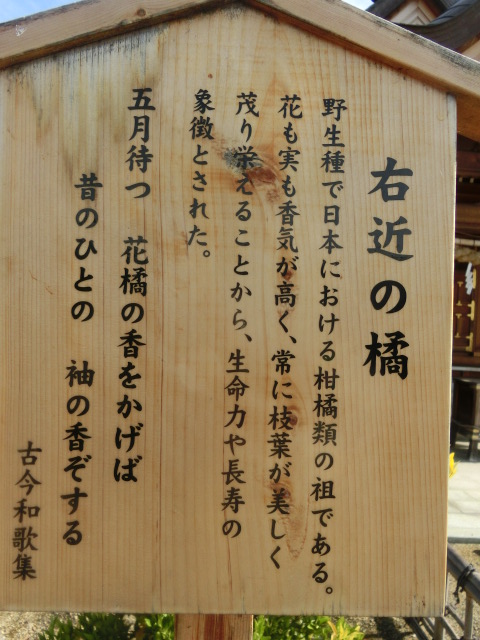 右近の橘
野生種で日本における柑橘類の祖である。
花も実も香気が高く、常に枝葉が美しく
茂り栄えることから、生命力や長寿の
象徴とされた。
五月待つ 花橘の香をかげば
昔のひとの 袖の香ぞする
古今和歌集